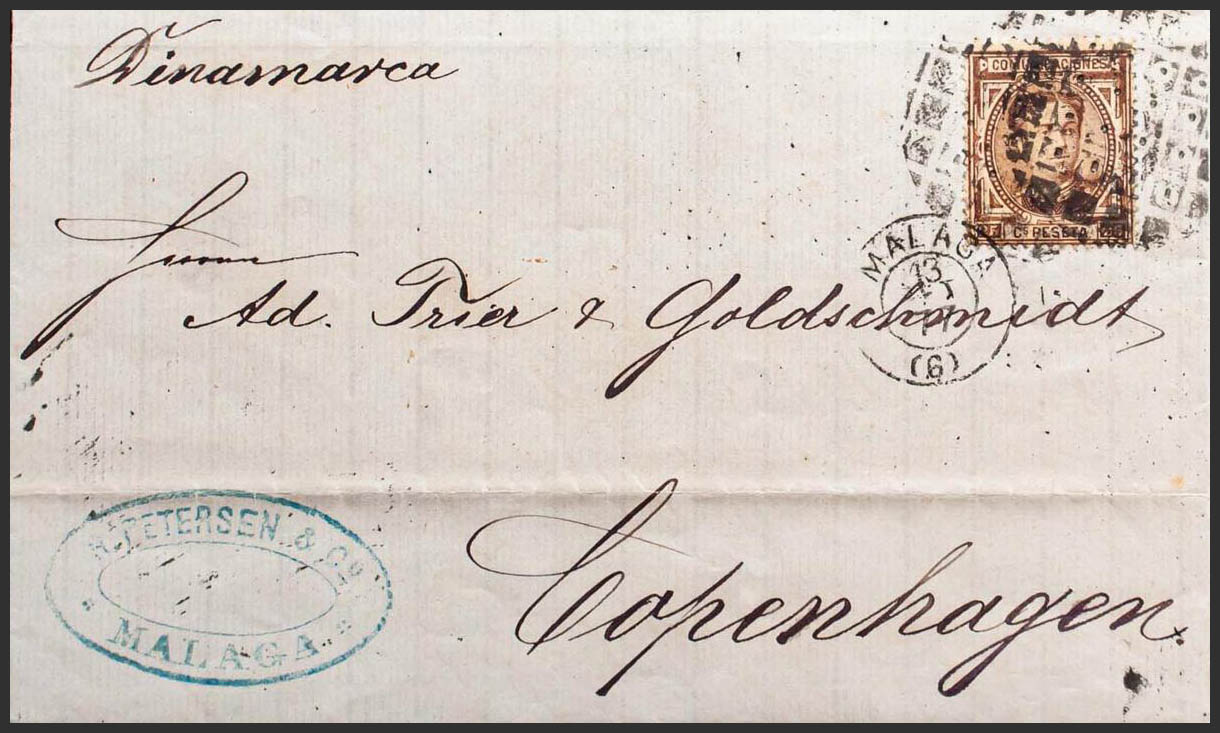 Dinamarca
COMUNICACIONES
Cs PESETA
MALAGA
13
(6)
Herren
Ad. Trier & Goldschmidt
PETERSEN & Co
MALAGA
Copenhagen.